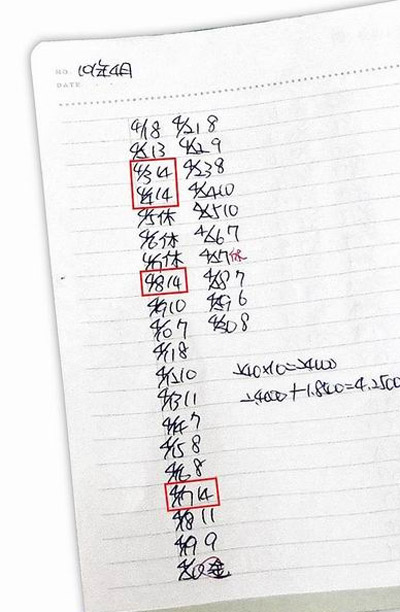 NO.
DATE
4/1 8 4/21 8
4/2 13 4/22 9
4/3 14 4/23 8
4/4 14 4/24 10
4/5 休 4/25 10
4/6 休 4/26 7
4/7 休 4/27 休
4/8 14 4/28 7
4/9 10 4/29 6
4/10 7 4/30 8
4/11 8
4/12 10
4/13 11
4/14 7
4/15 8
4/16 8
4/17 14
4/18 11
4/19 9
4/20